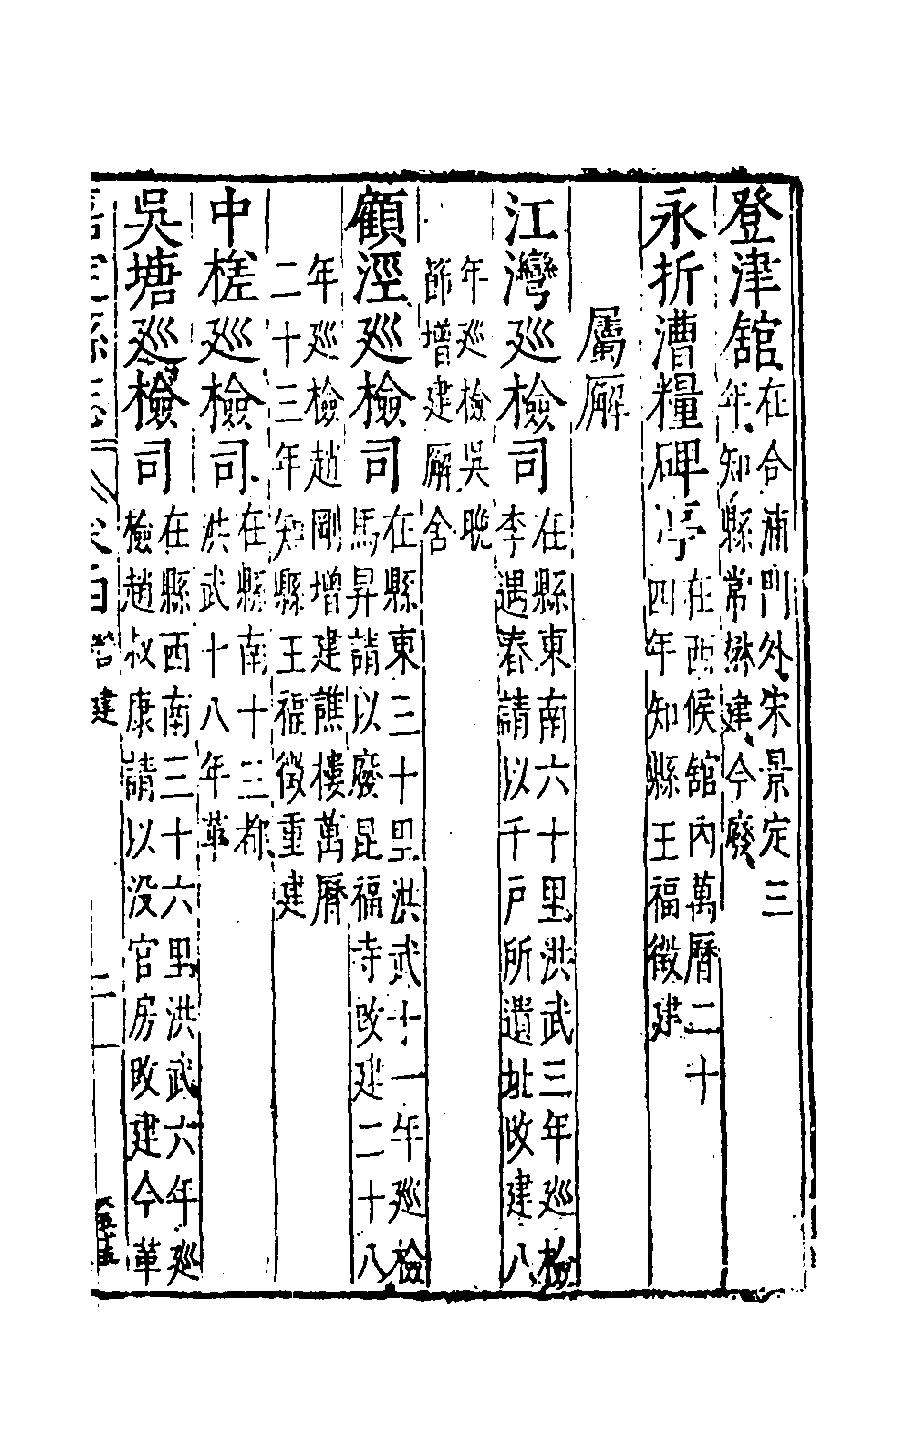 登津舘在合浦門外宋景定三
年知縣常楙建今廢
永折漕糧碑亭在西候舘内萬曆二十
四年知縣王福徵建
屬廨
江灣廵檢司在縣東南六十里洪武三年廵檢
李遇春請以千戶所遺址改建八
年廵檢吳晚
節增建廨舍
顧涇廵檢司在縣東三十里洪武十一年廵檢
馬昇請以廢昆福寺改建二十八
年廵檢趙剛增建譙樓萬曆
二十三年知縣王福徵重建
中槎廵檢司在縣南十三都
洪武十八年革
吳塘廵檢司在縣西南三十六里洪武六年廵
檢趙叔康請以没官房改建今革
嘉定縣志 營建